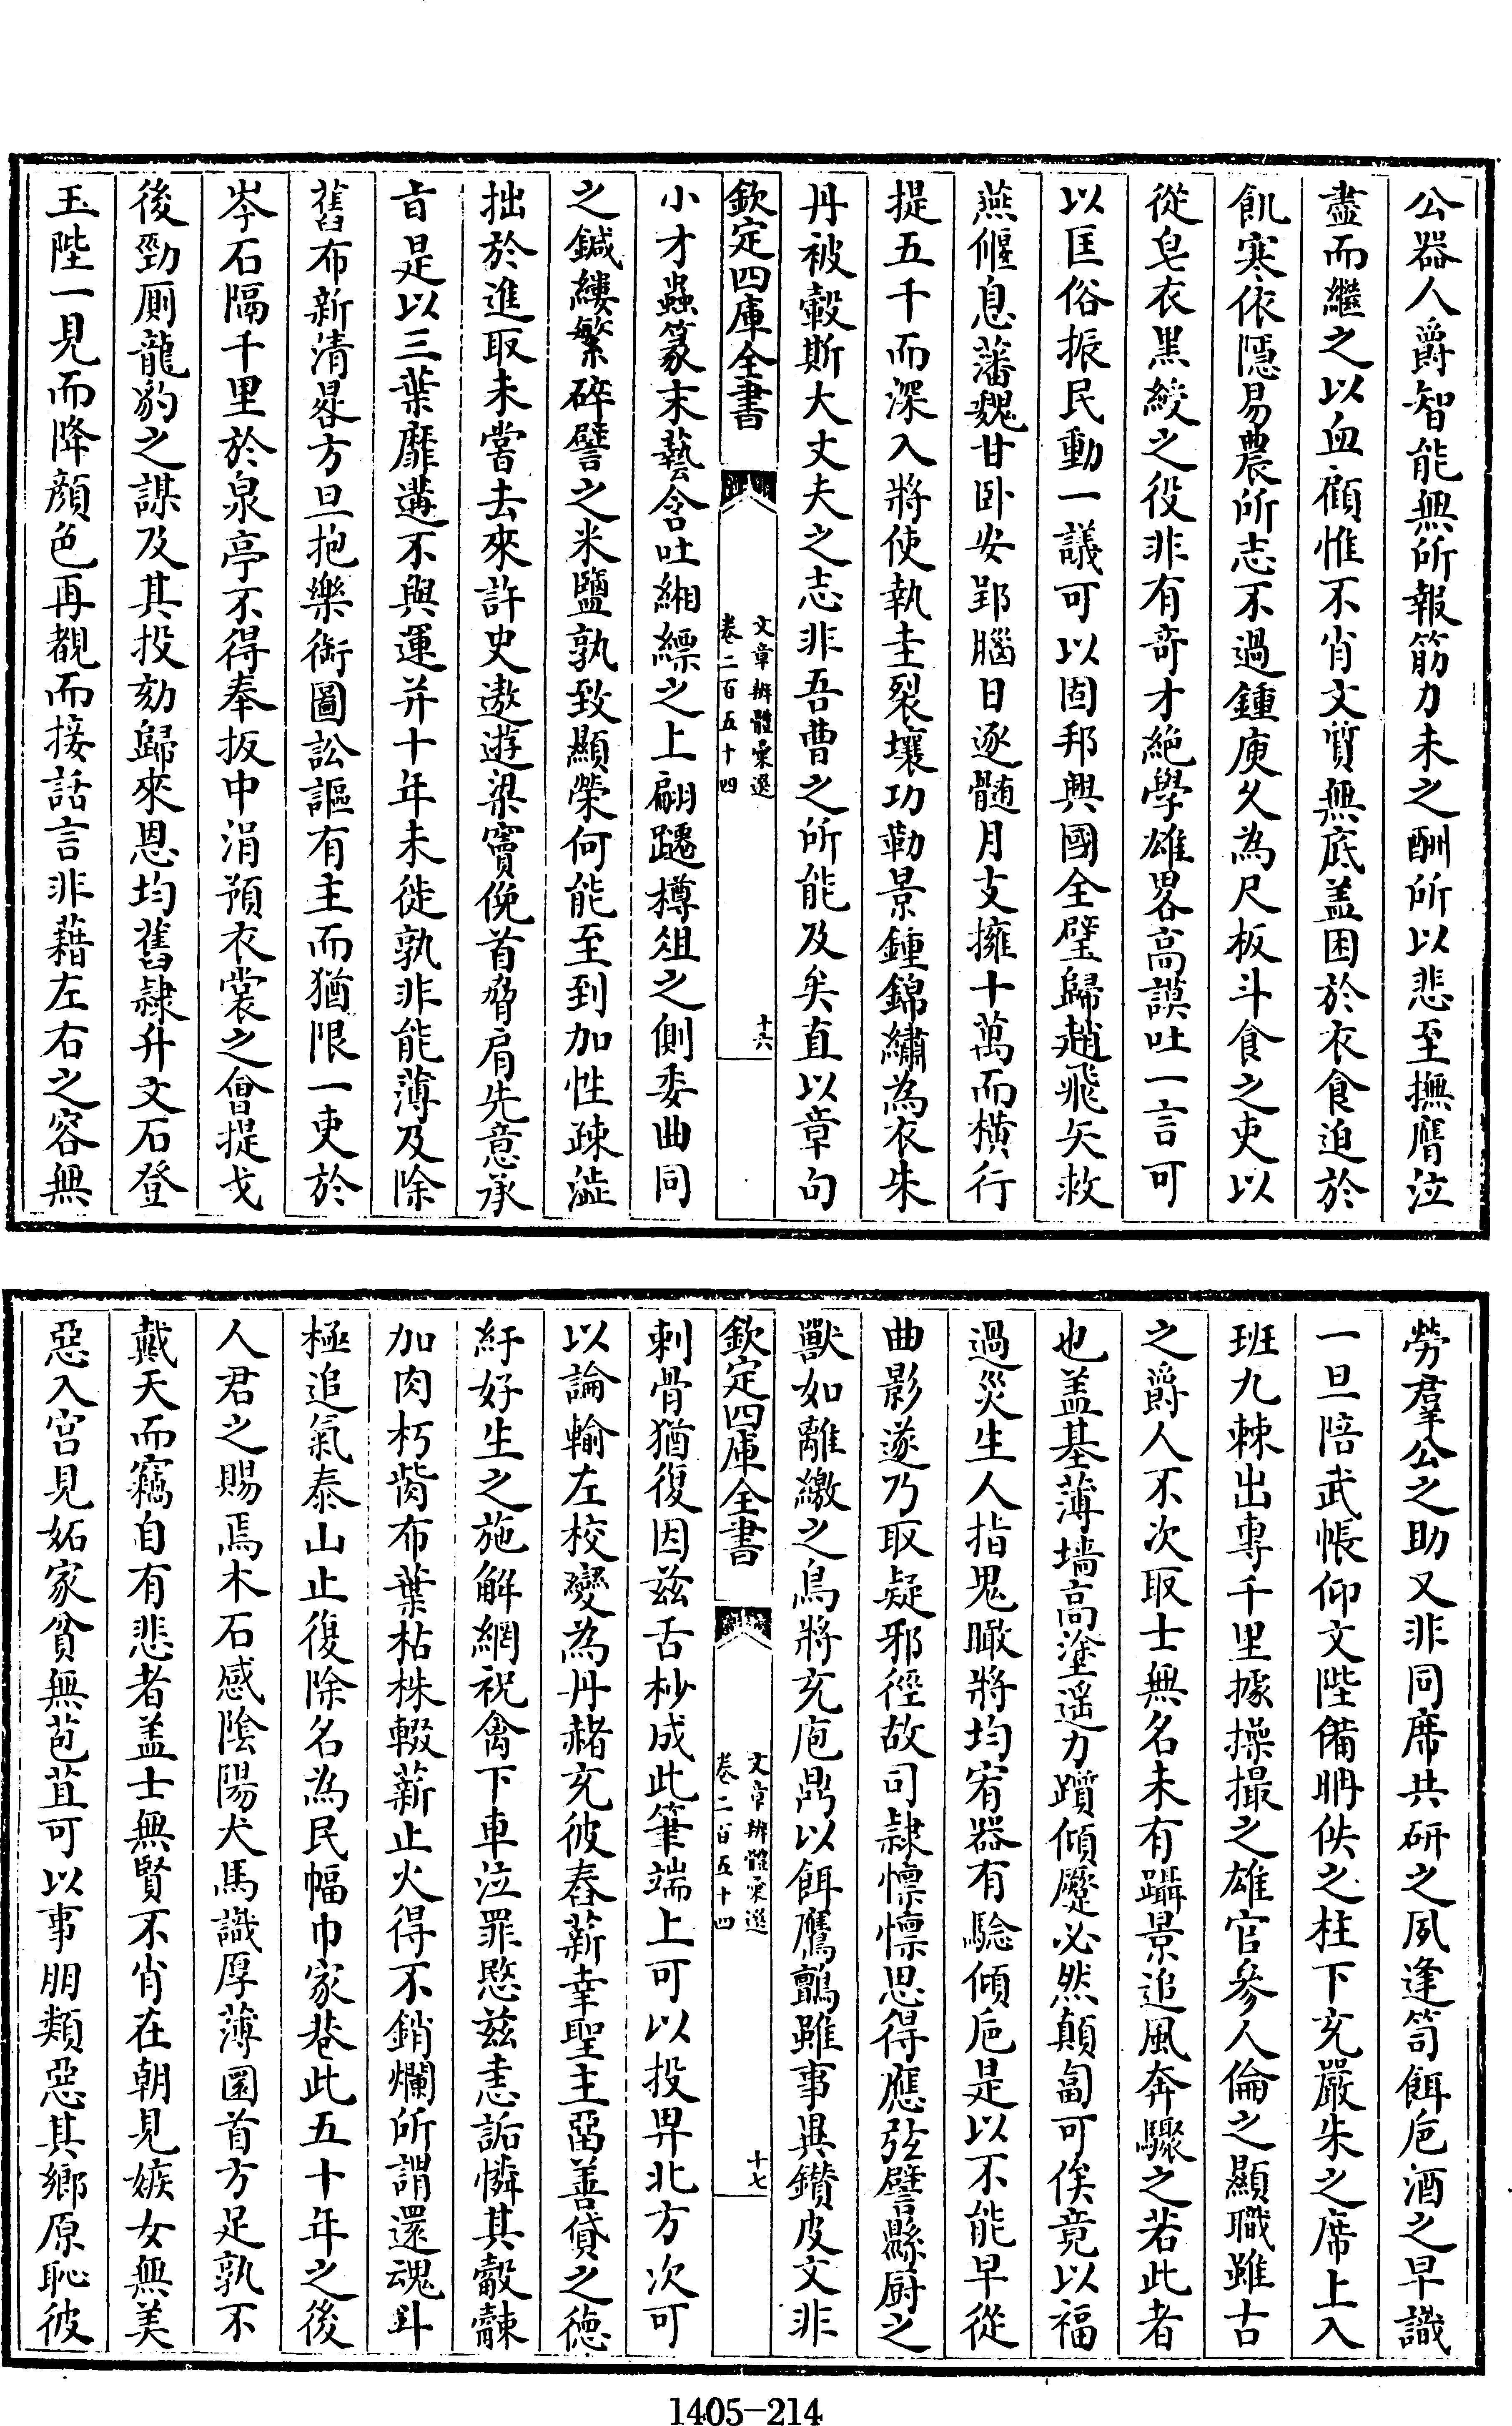 公器人爵智能無所報筋力未之酬所以悲至撫膺泣
盡而繼之以血顧惟不肖文質無底盖困於衣食迫於
飢寒依隱易農所志不過鍾庾久為尺板斗食之吏以
從皂衣黑綬之役非有奇才絶學雄畧高謨吐一言可
以匡俗振民動一議可以固邦興國全璧歸趙飛矢救
燕偃息藩魏甘卧安郢腦日逐髄月支擁十萬而横行
提五千而深入將使執圭裂壤功勒景鍾錦繡為衣朱
丹被轂斯大丈夫之志非吾曹之所能及矣直以章句
欽定四庫全書
文章辨體彚選
卷二百五十四
十六
小才蟲篆末藝含吐緗縹之上翩躚樽俎之側委曲同
之鍼縷繁碎譬之米鹽孰致顯榮何能至到加性疎澁
拙於進取未嘗去來許史遨遊梁竇俛首脅肩先意承
㫖是以三葉靡遘不與運并十年未徙孰非能薄及除
舊布新清晷方旦抱樂銜圖訟謳有主而猶限一吏於
岑石隔千里於泉亭不得奉扳中涓預衣裳之會提戈
後勁厠龍豹之謀及其投劾歸來恩均舊隷升文石登
玉陛一見而降顔色再覩而接話言非藉左右之容無
勞羣公之助又非同席共研之夙逢笥餌巵酒之早識
一旦陪武帳仰文陛備䎳佚之柱下充嚴朱之席上入
班九棘出専千里據操撮之雄官參人倫之顯職雖古
之爵人不次取士無名未有躡景追風奔驟之若此者
也盖基薄墻高塗遥力躓傾蹷必然顛匐可俟竟以福
過災生人指鬼瞰將均宥器有騐傾巵是以不能早從
曲影遂乃取疑邪徑故司隷懔懔思得應弦譬縣厨之
獸如離繳之鳥將充庖鼎以餌鷹鸇雖事異鑚皮文非
欽定四庫全書
文章辨體彚選
卷二百五十四
十七
刺骨猶復因兹舌杪成此筆端上可以投畀北方次可
以論輸左校變為丹赭充彼舂薪幸聖主畱善貸之徳
紆好生之施解網祝禽下車泣罪愍兹恚詬憐其觳觫
加肉朽胔布葉枯株輟薪止火得不銷爛所謂還魂斗
極追氣泰山止復除名為民幅巾家巷此五十年之後
人君之賜焉木石感陰陽犬馬識厚薄圎首方足孰不
戴天而竊自有悲者盖士無賢不肖在朝見嫉女無美
惡入宫見妬家貧無苞苴可以事朋類惡其鄉原恥彼
1405-214